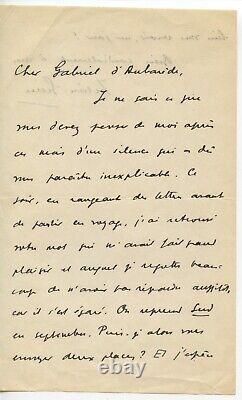 Cher Gabriel d'Aubarède,
Je ne sais ce que
vous devez penser de moi après
ces mois d'un silence qui a dû
vous paraître inexplicable. Ce
soir, en rangeant des lettres avant
de partir en voyage, j'ai retrouvé
votre mot qui m'avait fait grand
plaisir et auquel je regrette beau-
coup de n'avoir pas répondu aussitôt,
car il s'est égaré. On reprend Sud
en septembre. Puis-je alors vous
envoyer deux places? Et j'espère